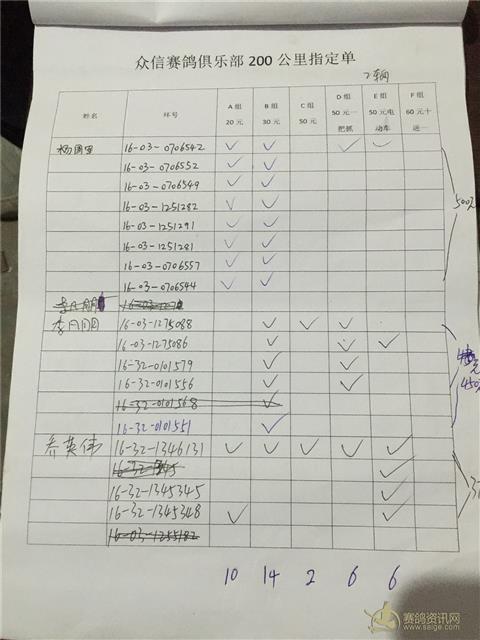 众信赛鸽俱乐部 200 公里指定单
2辆
姓名 环号 A 组 20 元 B 组 30 元 C 组 50 元 D 组 50 元一把抓 E 组 50 元电动车 F 组 60 元十选一
16-03-0706542 ✓ ✓ ✓ ✓
16-03-0706552 ✓ ✓
16-03-0706549 ✓ ✓
16-03-1251282 ✓ ✓
16-03-1251291 ✓ ✓
16-03-1251281 ✓ ✓
16-03-0706557 ✓ ✓
16-03-0706544 ✓ ✓
500元
李月朋
16-03-1275088 ✓ ✓ ✓
16-03-1275086 ✓ ✓ ✓
16-32-0101579 ✓ ✓
16-32-0101556 ✓ ✓
16-32-0101568 ✓
16-32-0101551 ✓
450元
乔英伟 16-32-1346131 ✓ ✓ ✓ ✓ ✓
✓
16-32-1345345 ✓
16-32-1345348 ✓ ✓
16-03-1255182
10 14 2 6 6
赛鸽资讯网
www.saige.com